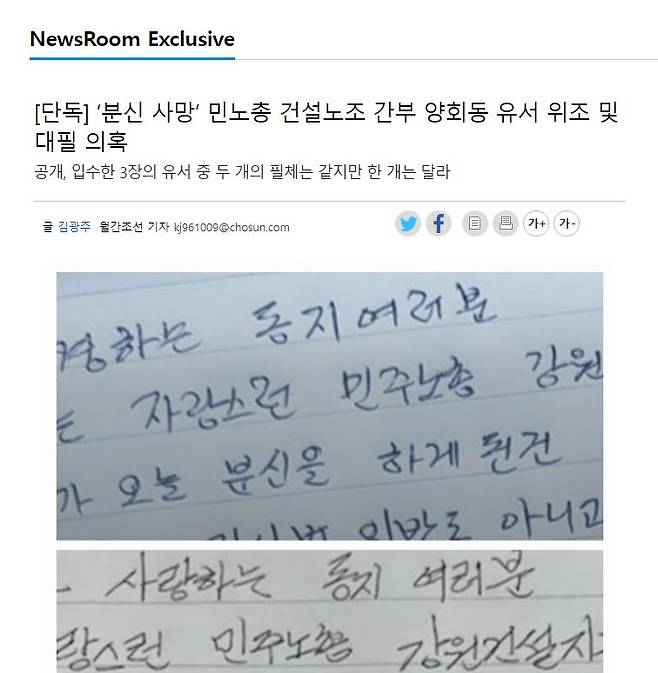 NewsRoom Exclusive
[단독] ‘분신 사망’ 민노총 건설노조 간부 양회동 유서 위조 및
대필 의혹
공개, 입수한 3장의 유서 중 두 개의 필체는 같지만 한 개는 달라
글 김광주 월간조선 기자 kj961009@chosun.com
가+ 가-
경하는 동지여러분
는 자랑스런 민주노총 강원
가 오늘 분신을 하게 된건
위반도 아니고
사랑하는 동지 여러분
랑스런 민주노총 강원건설지